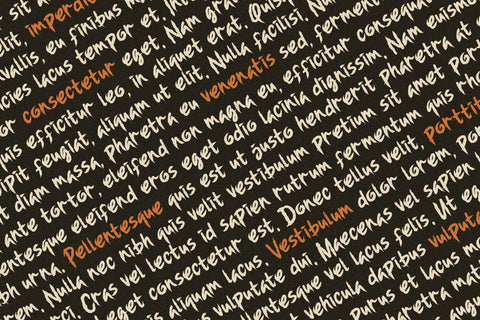 sit a
elit, imperdie
vallis, eu finibus m
icies lacus tempor et.
or consectetur eget. Nam gra
quis efficitur leo, in aliquet erat. Quis
cipit feugiat, aliquam ut elit. Nulla facilisi. Nun
t diam massa. Pharetra eu venenatis sed, ferment
ante tortor eleifend non magna eu, efficitur consequa
entesque eleifend eros eget odio lacinia dignissim. Nam
bh urna. Pellentesque quis est ut justo hendrerit Pharetra at
rem. Nulla nec nibh quis velit vestibulum pretium sit amet por
rci. Cras vel lectus id sapien rutrum fermentum quis rh
eget consectetur est. Donec tellus velit, porttit
is aliquam lacus. Vestibulum dolor lorem, po
vulputate dui. Maecenas vel sapien
entesque vel lacus felis. Ut eg
vehicula dapibus vulputa
purus et lacus mo
haretra mat